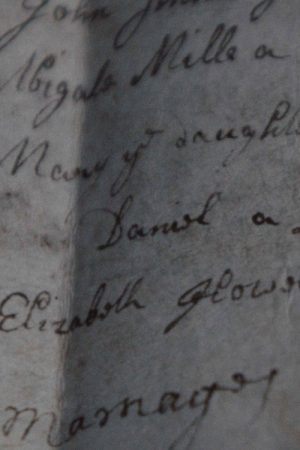 John
Abigale Mills a
Mary yᵉ daughte
Daniel a
Elizabeth Flowe
Marriages